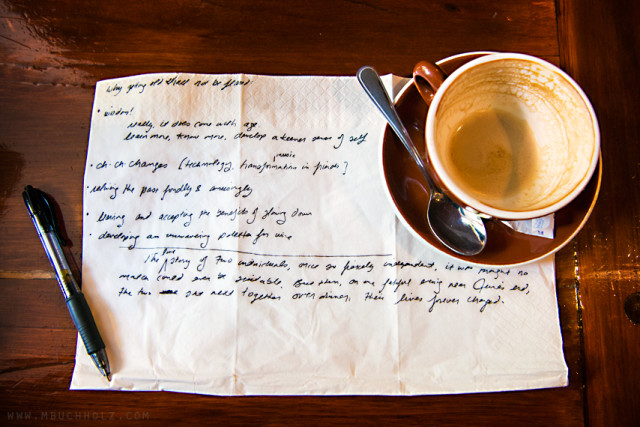 why getting old shall not be feared:
• wisdom!
really, it does come with age
learn more, know more, develop a keener sense of self
• ch-ch changes [technology, music, transformation in friends]
• reliving the past fondly & amusingly
• learning and accepting the benefits of slowing down
• developing an unwavering palette for wine
The true story of two individuals, once so fiercely independent, it was thought no
match could ever be suitable. But then, on one fateful evening near June's end,
the two met together over dinner, their lives forever changed.
WWW.MBUCHHOLZ.COM